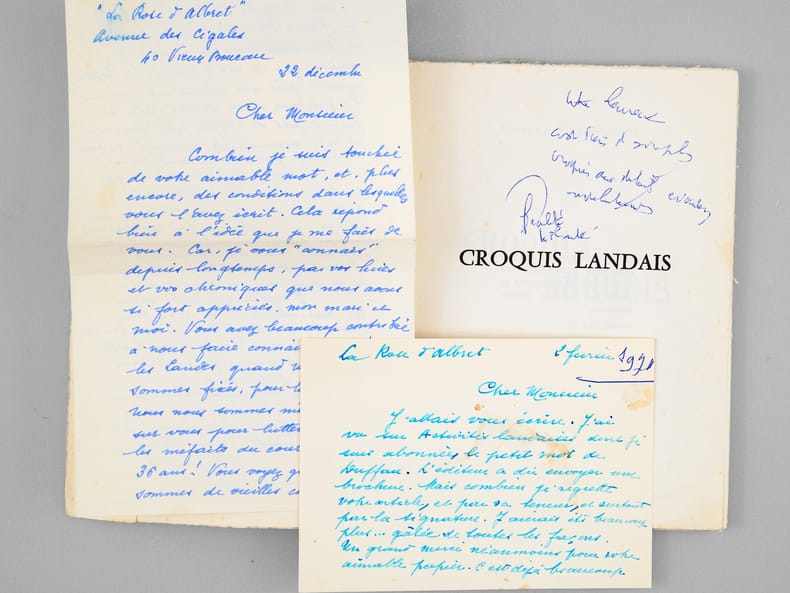 "La Rose d'Albret"
Avenue des Cigales
40 Vieux Boucau
22 décembre
Cher Monsieur
Combien je suis touchée
de votre aimable mot, et, plus
encore, des conditions dans lesquelles
vous l'avez écrit. Cela répond
bien à l'idée que je me fais de
vous. Car, je vous "connais"
depuis longtemps, par vos livres
et vos chroniques que nous avons
si fort appréciés, mon mari et
moi. Vous avez beaucoup contribué
à nous faire connaî
les Landes quand
sommes fixés, pour
nous nous sommes
sur vous pour lutter
les méfaits du
36 ans! Vous voyez
sommes de vieilles
croquis aux
CROQUIS LANDAIS
La Rose d'Albret 2 février 1971
Cher Monsieur
J'allais vous écrire. J'ai
vu sur Actualités landaises dont je
suis abonnée, le petit mot de
Duffau. L'éditeur a dû envoyer une
brochure. Mais combien je regrette
votre article, et par sa teneur, et surtout
par la signature. J'aurais été beaucoup
plus... gâtée de toutes les façons.
Un grand merci néanmoins pour votre
aimable papier. C'est déjà beaucoup